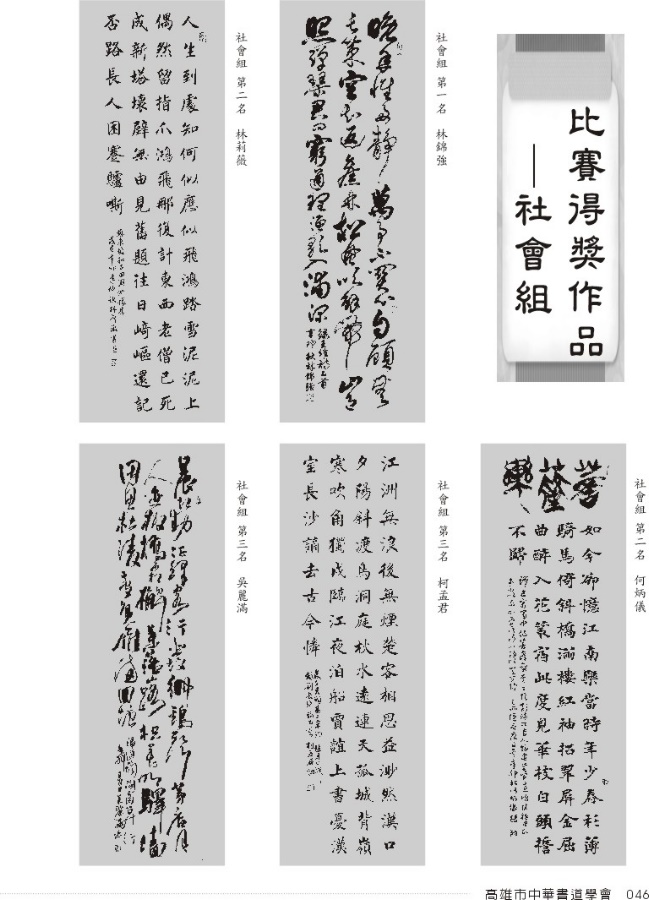 比賽得獎作品
—社會組
社會組 第一名 林錦強
晚年惟好靜萬事不關心自顧無
長策空知返舊林松風吹解帶山月
照彈琴君問窮通理漁歌入浦深
社會組 第二名 林莉薇
人生到處知何似應似飛鴻踏雪泥泥上
偶然留指爪鴻飛那復計東西老僧已死
成新塔壞壁無由見舊題往日崎嶇還記
否路長人困蹇驢嘶
社會組 第二名 何炳儀
菩薩蠻
如今卻憶江南樂當時年少春衫薄
騎馬倚斜橋滿樓紅袖招翠屏金屈
曲醉入花叢宿此度見華枝白頭誓
不歸
社會組 第三名 柯孟君
江洲無浪復無煙楚客相思益渺然漢口
夕陽斜渡鳥洞庭秋水遠連天孤城背嶺
寒吹角獨戍臨江夜泊船賈誼上書憂漢
室長沙謫去古今憐
社會組 第三名 吳麗滿
晨起動征鐸客行悲故鄉雞聲茅店月
人迹板橋霜槲葉落山路枳花明驛牆
因思杜陵夢鳧雁滿回塘
高雄市中華書道學會 046